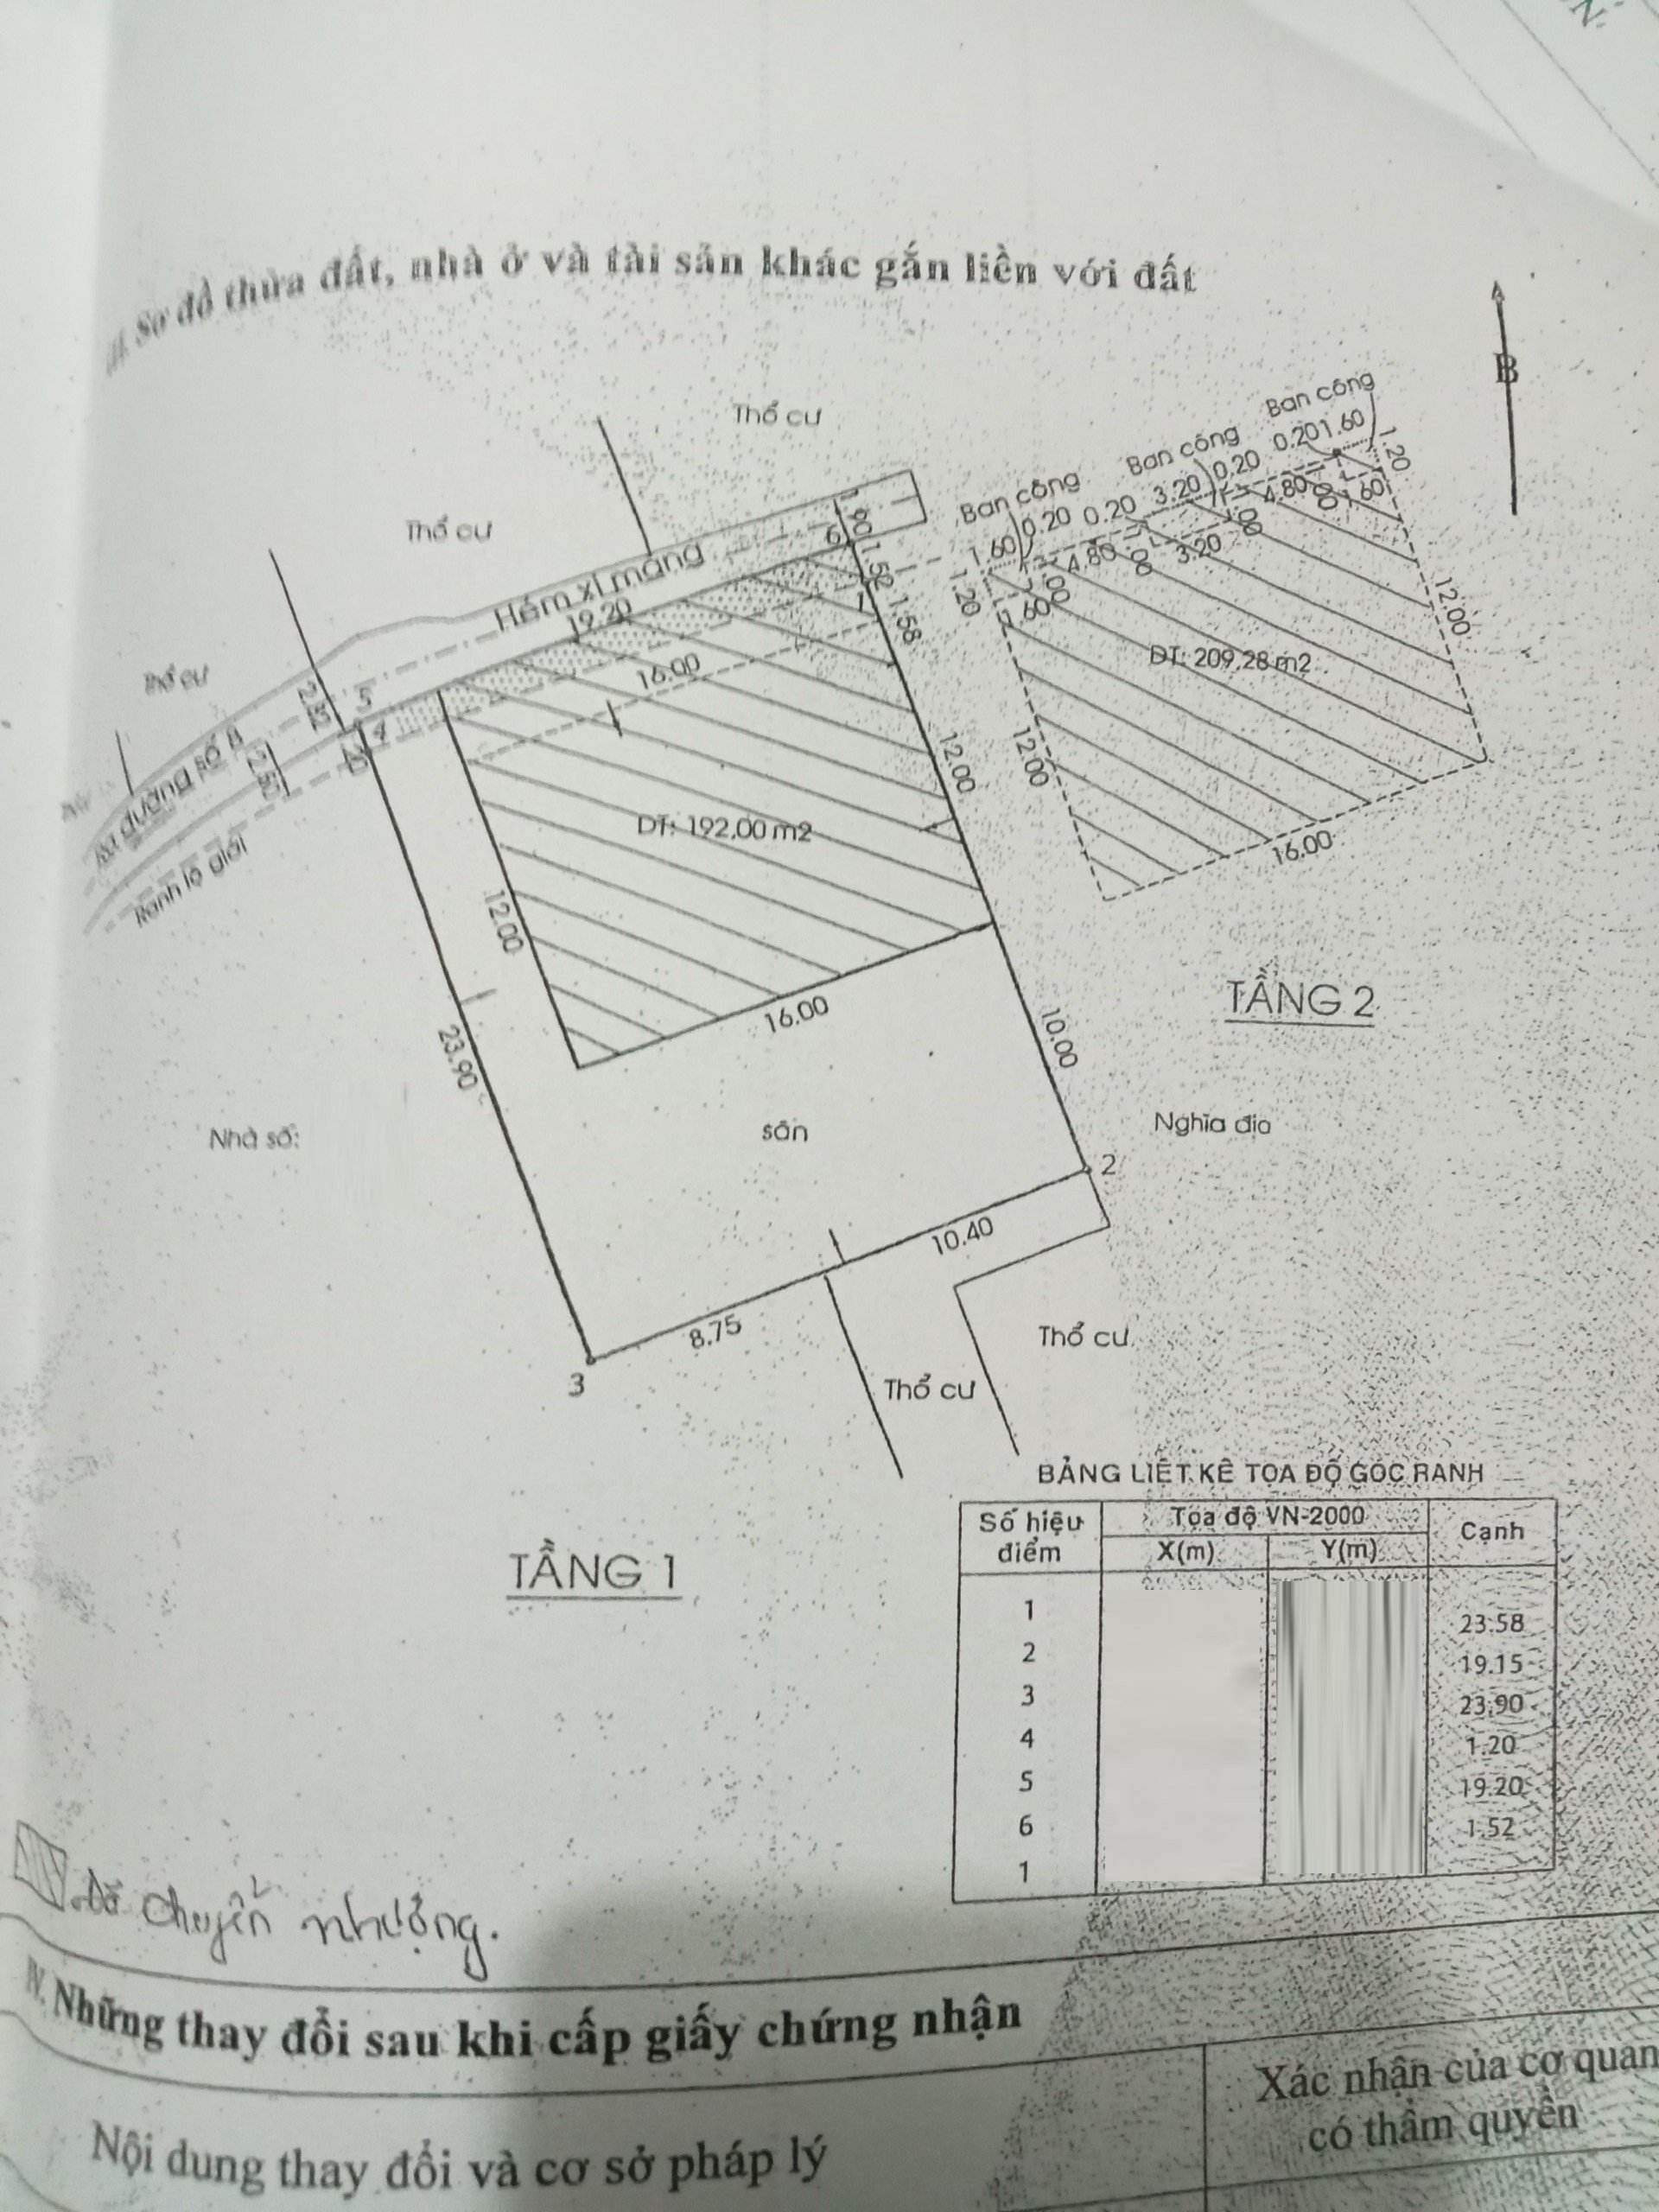 III. Sơ đồ thửa đất, nhà ở và tài sản khác gắn liền với đất
B
Thổ cư
Thổ cư
Thổ cư
Hẻm xi măng
19.20
1.90
6
1.52
1
1.58
16.00
2.32
5
4
1.20
2.50
Ra đường số 8
Ranh lộ giới
DT: 192,00 m2
12.00
12.00
16.00
23.90
10.00
Nhà số:
sân
Nghĩa địa
2
10.40
8.75
3
Thổ cư
Thổ cư
TẦNG 1
Ban công
Ban công
Ban công
1.60
0.20
0.20
3.20
0.20
0.20
1.60
1.20
1.20
4.80
4.80
3.20
1.60
1.60
DT: 209,28 m2
12.00
12.00
16.00
TẦNG 2
BẢNG LIỆT KÊ TỌA ĐỘ GÓC RANH
Số hiệu điểm
Tọa độ VN-2000
Cạnh
X(m)
Y(m)
1
23.58
2
19.15
3
23.90
4
1.20
5
19.20
6
1.52
1
Đã chuyển nhượng.
IV. Những thay đổi sau khi cấp giấy chứng nhận
Nội dung thay đổi và cơ sở pháp lý
Xác nhận của cơ quan
có thẩm quyền